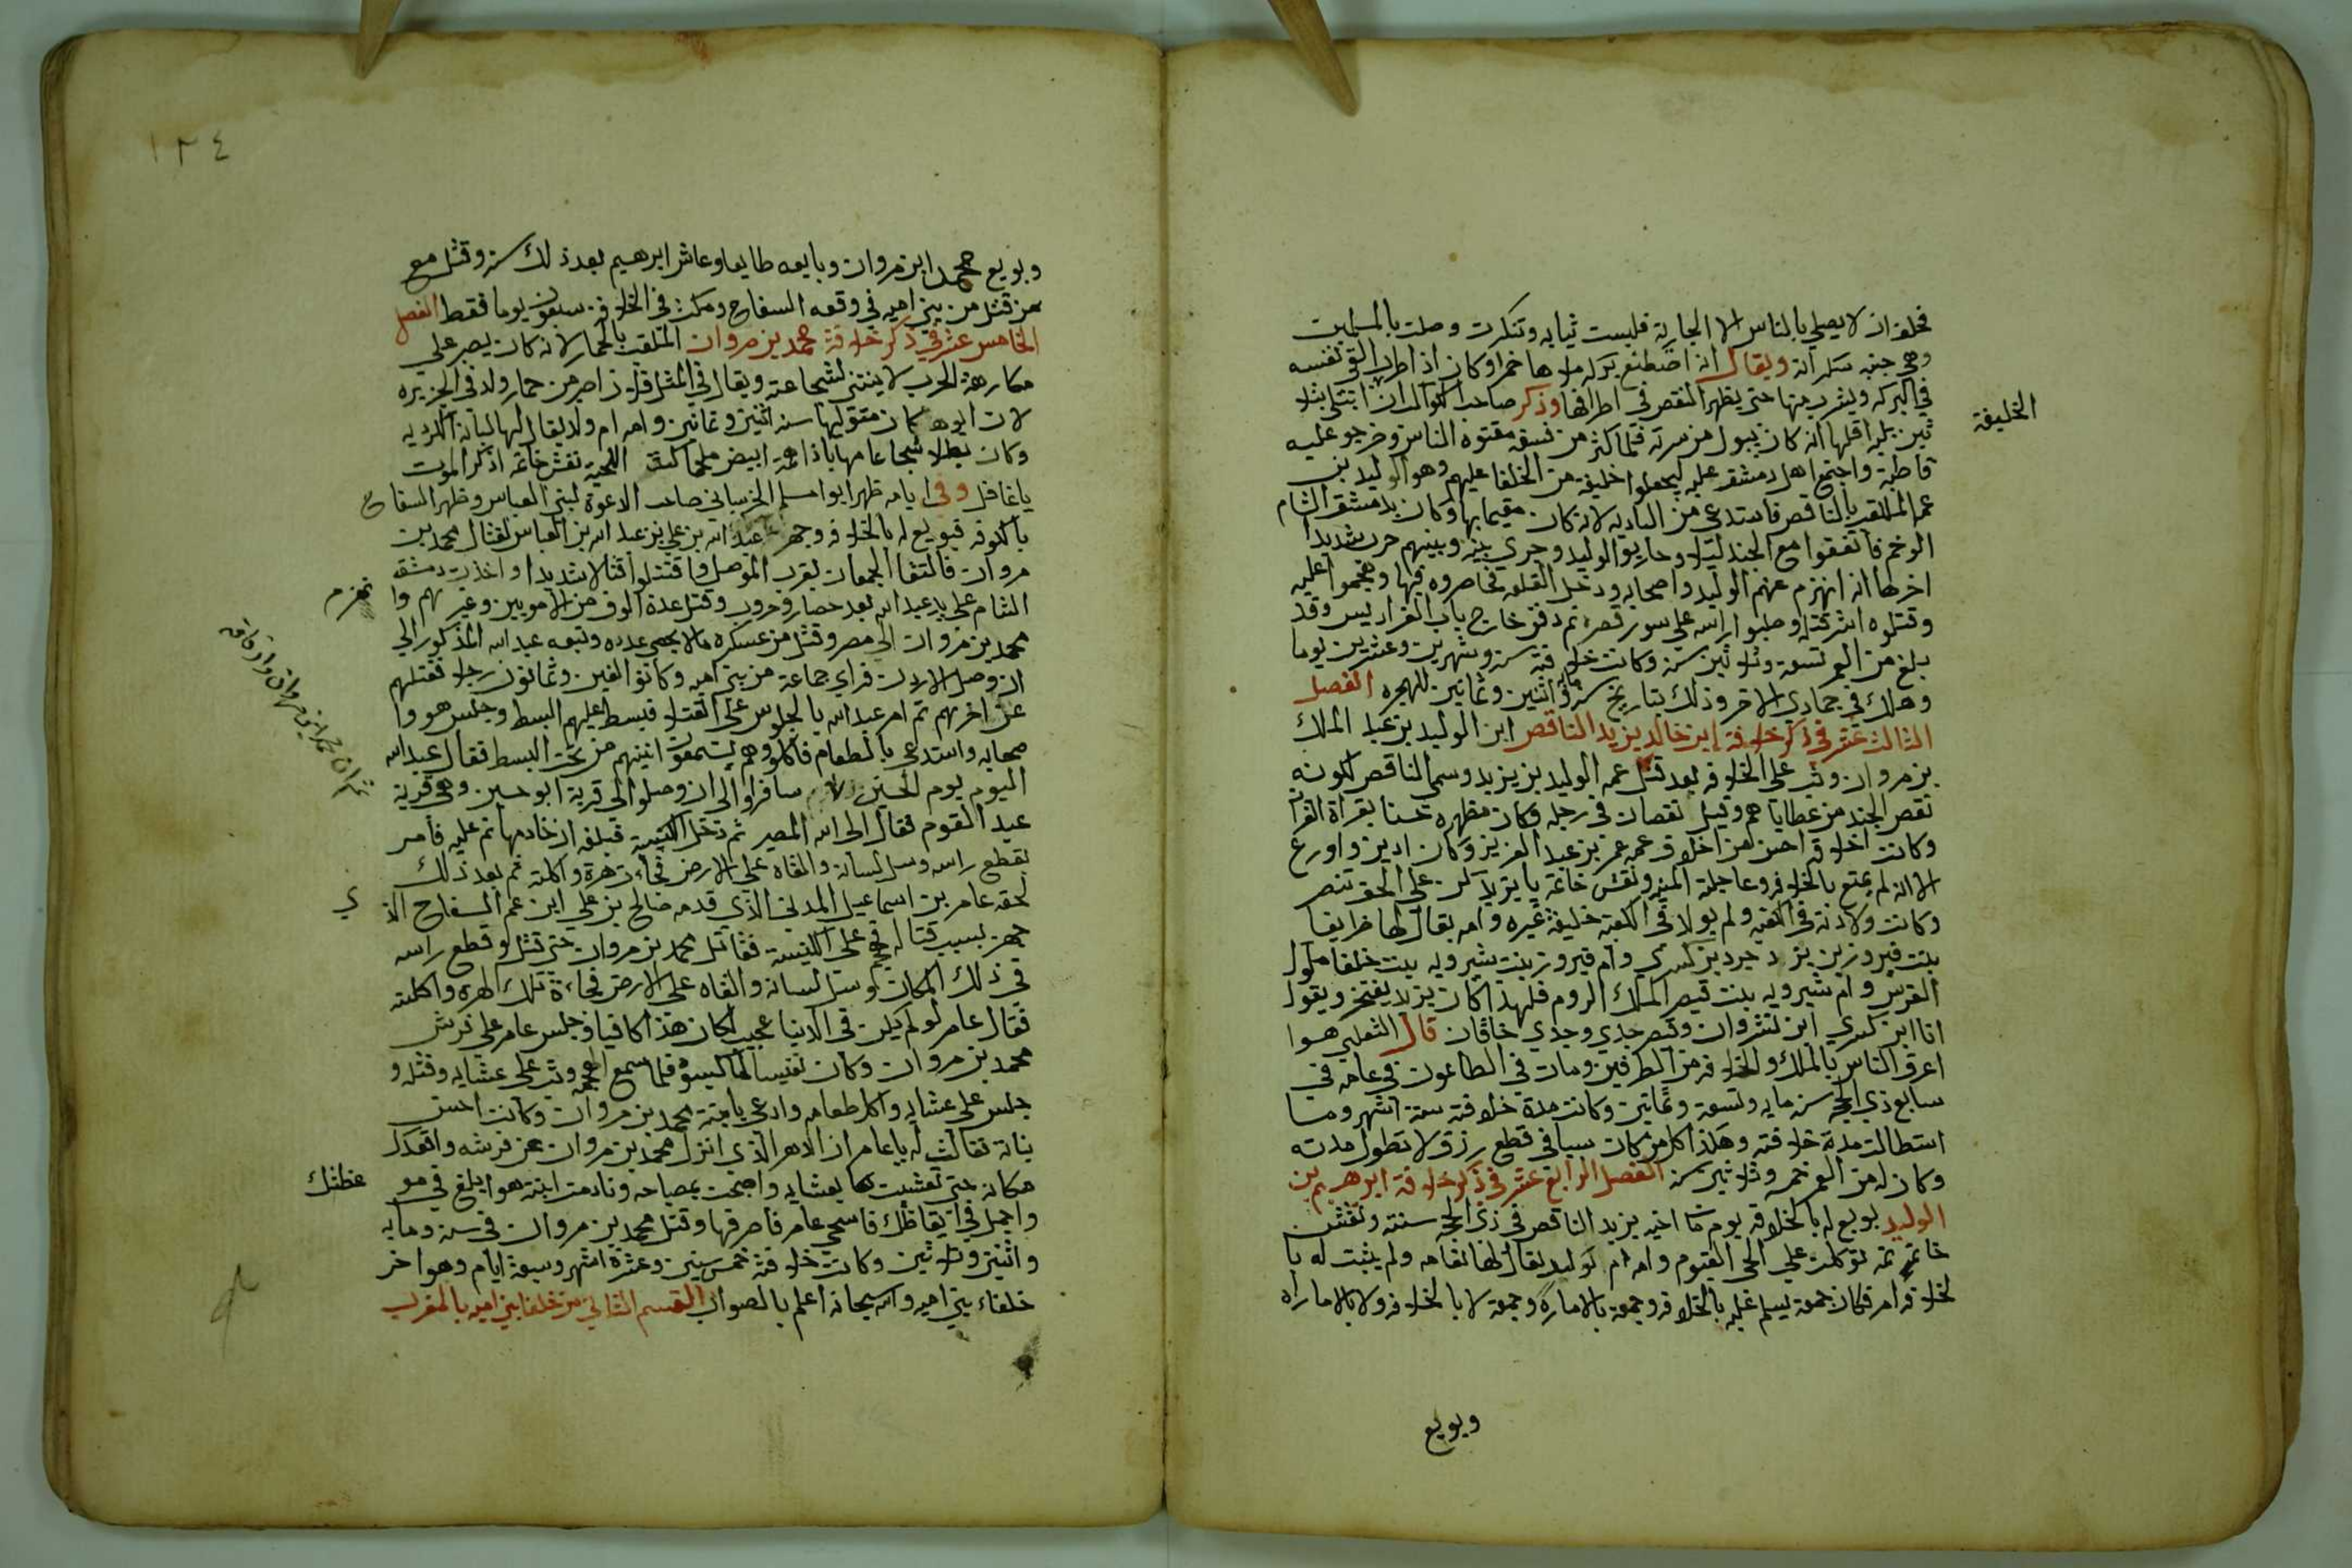 فحلف ان لا يصلي بالناس الا الجارية فلبست ثيابه وتنكرت وصلت بالمسلمين
وهي جنبه سكرانة ويقال انه اصطنع بركه ملاها خمرا وكان اذا طرب القى نفسه
في البركه ويشرب منها حتى يظهر النقص في اطرافها وذكر صاحب
الخليفة
انه كان يبول من سرته فلما كثر من فسقه مقتوه الناس وخرجو عليه
قاطبة واجتمع اهل دمشق عليه ليجعلوا خليفة من الخلفا عليهم وهو الوليد بن
عم الملقب بالناقص فاستدعي من الباديه لانه كان مقيما بها وكان بدمشق الشام
الوخم فاتفقوا مع الجند ليلا وحاربوا الوليد وجري بينه وبينهم حرب شديدا
اخرها انه انهزم عنهم الوليد واصحابه ودخل القلعه فحاصروه فيها وهجموا عليه
وقتلوه اشر قتله وصلبوا راسه علي سور قصره ثم دفن خارج باب الفراديس وقد
بلغ من العمر تسعة وثلاثين سنة وكانت خلافته سنة وشهرين وعشرين يوما
وهلك في جمادي الاخر وذلك بتاريخ سنة اثنين وثمانين للهجره الفصل
الثالث عشر في ذكر خلافة ابن خالد يزيد الناقص ابن الوليد بن عبد الملك
بن مروان وثب على الخلافه بعد قتل عمه الوليد بن يزيد وسمي الناقص لكونه
نقص الجند من عطاياهم وقيل نقصان في رجله وكان مظهره حسنا بقراة القران
وكانت اخلاقه احسن من اخلاق عمه عمر بن عبد العزيز وكان ادين واورع
الا انه لم يمتع بالخلافه وعاجلته المنيه ونقش خاتمه يا يزيد كن علي الحق تنصر
وكانت ولادته في الكعبه ولم يولد في الكعبة خليفة غيره وامه يقال لها
بنت فيروز بن يزدجرد بن كسري وام فيروز بنت شيرويه بنت خلفا ملوك
الفرس وام شيرويه بنت قيصر الملك الروم فلهذا كان يزيد يفتخر ويقول
انا ابن كسري ابن وقيصر جدي وجدي خاقان قال الثعلبي هوا
اعرق الناس بالملك والخلافه من الطرفين ومات في الطاعون في عامه في
سابع ذي الحجه سنة مايه وتسعة وثمانين وكانت مدة خلافته ستة اشهر وما
استطالت مدة خلافته وهكذا كل من كان سببا في قطع رزق لا تطول مدته
وكان له من العمر خمسة وثلاثين سنة الفصل الرابع عشر في ذكر خلافة ابرهيم بن
الوليد بويع له بالخلافه يوم مات اخيه يزيد الناقص في ذي الحجه سنته ونقش
خاتمه توكلت علي الحي القيوم وامه ام لوليد يقال لها نعامه ولم يثبت له با
لخلافه امر فكان جمعة يسلم عليه بالخلافه وجمعة بالاماره وجمعة لا بالخلافه ولا بالاماراه
وبويع
١٣٤
وبويع محمد ابن مروان وبايعه طايعا وعاش ابرهيم بعد ذلك سنة وقتل مع
من قتل من بني اميه في وقعه السفاح ومكث في الخلافه سبعون يوما فقط الفصل
الخامس عشر في ذكر خلافة محمد بن مروان الملقب بالحمار لانه كان يصبر علي
مكارهة الحرب لا ينتني لشجاعته ويقال في المثل فلان اصبر من حمار ولد في الجزيره
لان ابوه كان متوليها سنة اثنين وثمانين وامه ام ولد يقال لها لبابة الكرديه
وكان بطلا شجاعا مهابا ذاهمة ابيض مليحا كث اللحية نقش خاتمه اذكر الموت
يا غافل وفي ايامه ظهر ابوا مسلم الخرساني صاحب الدعوة لبني العباس وظهر السفاح
بالكوفه فبويع له بالخلافه وجهز عبد الله بن علي بن عبد الله بن العباس لقتال محمد بن
مروان فالتقا الجمعان بقرب الموصل واقتتلوا قتالا شديدا واخذت دمشق
الشام علي يد عبد الله بعد حصار وحروب وقتل عدة الوف من الامويين وغيرهم وا
نهزم
محمد بن مروان الي مصر وقتل من عسكره ما لا يحصي عدده وتبعه عبد الله المذكور الي
ان وصل الاردن فراي جماعة من بني اميه وكانوا الفين وثمانون رجلا فقتلهم
عن اخرهم ثم امر عبد الله بالجلوس علي القتلا فبسط عليهم البسط وجلس هو وا
صحابه واستدعي بالطعام فاكلو وهم يسمعون انينهم من تحت البسط فقال عبد الله
اليوم يوم الحسين سافروا الي ان وصلوا الي قرية ابو حسين وهي قرية
ثم ان محمد ابن مروان ورفاقه
عبد القوم فقال الى الله المصير ثم دخل الكنيسة فبلغه ان خادمها نم عليه فامر
بقطع راسه وسل لسانه والقاه علي الارض فجاءت هرة واكلته ثم بعد ذلك
لحقه عامر بن اسماعيل المدلي الذي قدمه صالح بن علي ابن عم السفاح الذ
ي
جهز بسبب قتاله فهجم على الكنيسة فقاتل محمد بن مروان حتى قتل وقطع راسه
في ذلك المكان وسل لسانه والقاه علي الارض فجاءة تلك الهره واكلته
فقال عامر لو لم يكن في الدنيا عجيب لكان هذا كافيا وجلس عامر علي فرش
محمد بن مروان وكان فلما سمع وثب علي عشايه وقتله و
جلس علي عشايه واكل طعامه وادعي يا بنة محمد بن مروان وكانت احسن
بناته فقالت له يا عامر ان الدهر الذي انزل محمد بن مروان عن فرشه واقعدك
مكانه حتى تعشيت بعشايه واصبحت بمصباحه ونادمت ابنته هوا ابلغ في مو
عظتك
واجمل في ايقاظك فاستحي عامر فاصرفها وقتل محمد بن مروان في سنة ومايه
واثنين وثلاثين وكانت خلافته خمس سنين وعشرة اشهر وسبعة ايام وهو اخر
خلفاء بني اميه والله سبحانه اعلم بالصواب القسم الثاني من خلفا بني اميه بالمغرب